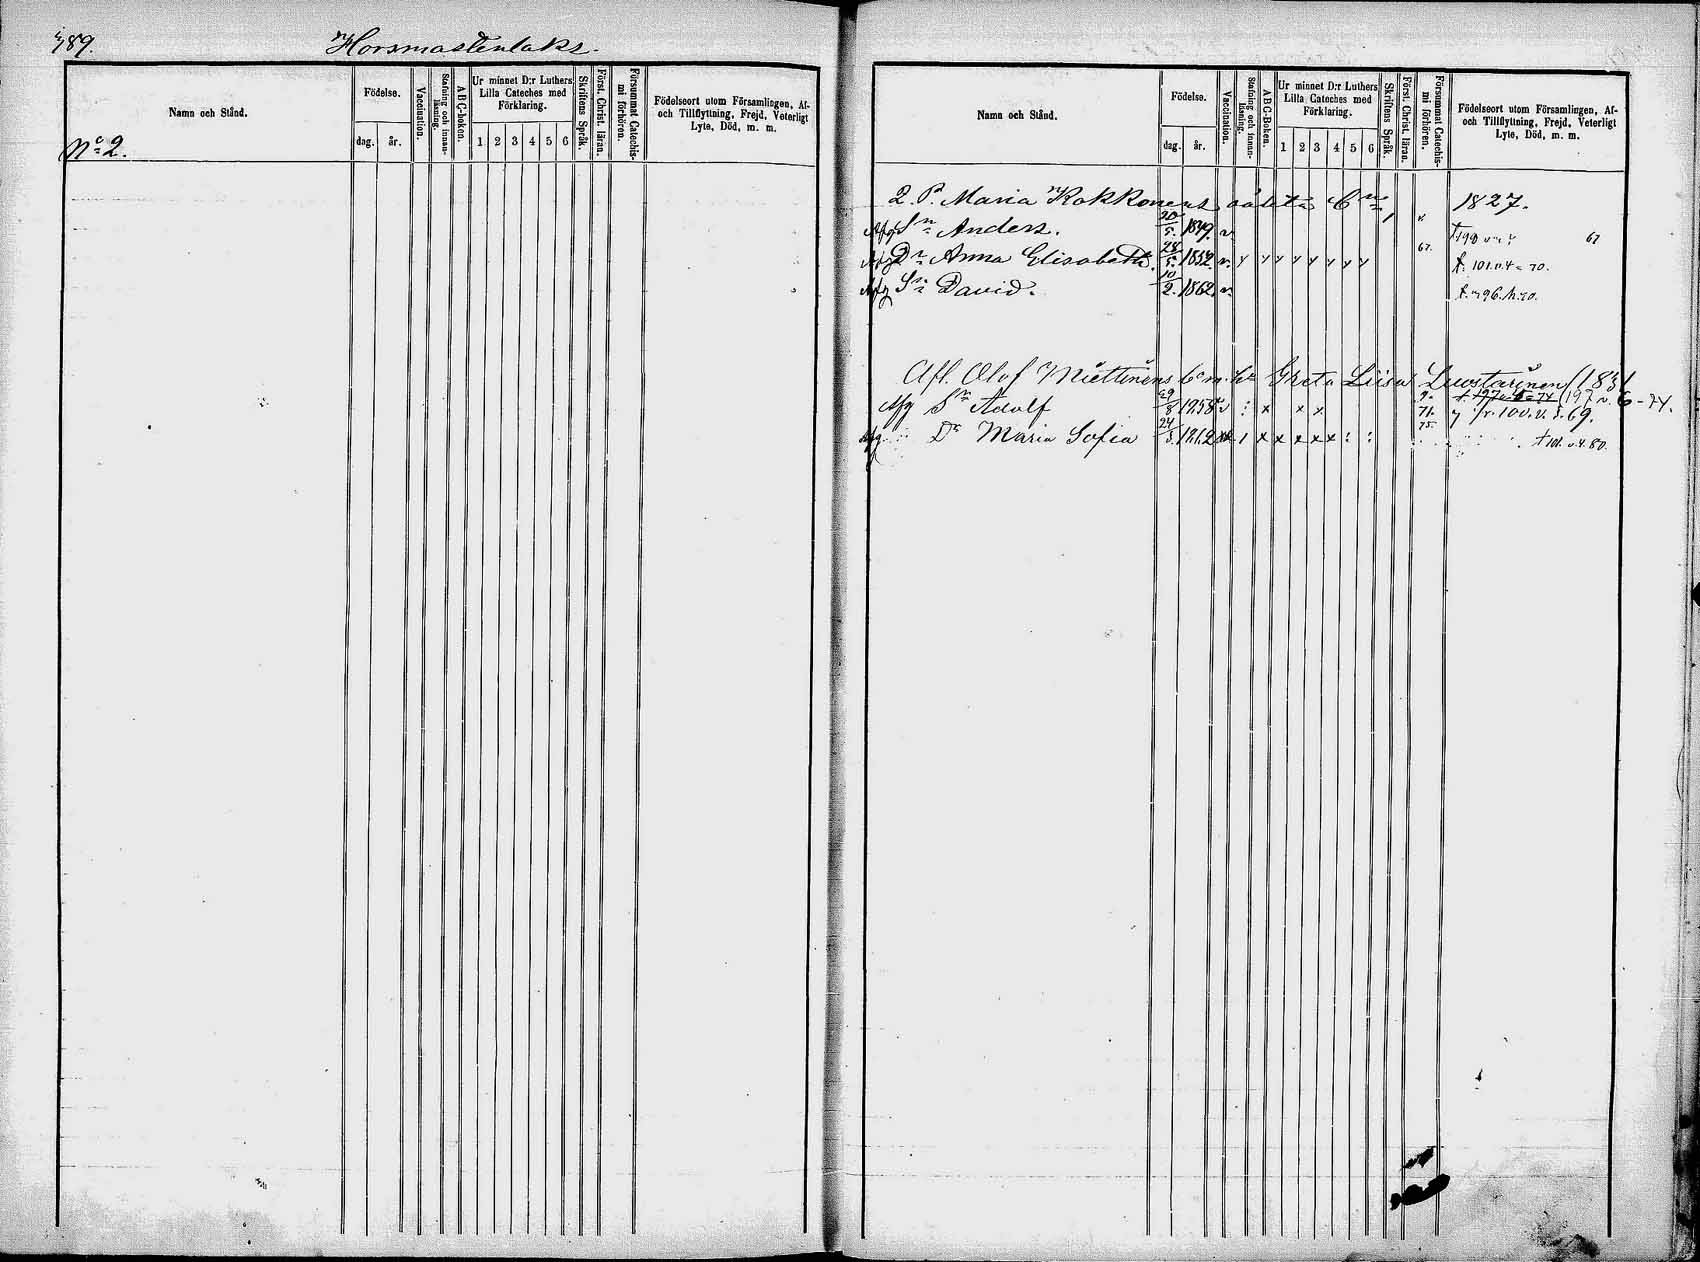 389. Horsmastenlaks.
Namn och Stånd.
Födelse.
dag. år.
Vaccination.
Stafning och innan-läsning.
A B C-boken.
Ur minnet D:r Luthers Lilla Cateches med Förklaring.
1 2 3 4 5 6
Skriftens Språk.
Först. Christ. läran.
Försummat Catechis-mi förhören.
Födelseort utom Församlingen, Af- och Tillflyttning, Frejd, Veterligt Lyte, Död, m. m.
No 2.
Namn och Stånd.
Födelse.
dag. år.
Vaccination.
Stafning och innan-läsning.
A B C-Boken.
Ur minnet D:r Luthers Lilla Cateches med Förklaring.
1 2 3 4 5 6
Skriftens Språk.
Först. Christ. läran.
Försummat Catechis-mi förhören.
Födelseort utom Församlingen, Af- och Tillflyttning, Frejd, Veterligt Lyte, Död, m. m.
2. P. Maria Kokkonens oäkta 1827.
Sn Anders. 20/5. 1849. v 67
Dr Anna Elisabeth. 28/5. 1852. v. 67. f. 101. v. 4 = 70.
Sn David. 10/2. 1862. v. 96. 70.
Afl. Olof Miettinens Greta Liisa Luostarinen (1831
Sn Adolf 29/8 1858 v x x x 71. 69.
Dr Maria Sofia 24/5. 1862 x x x x x 75. 101. v. 4. 80.